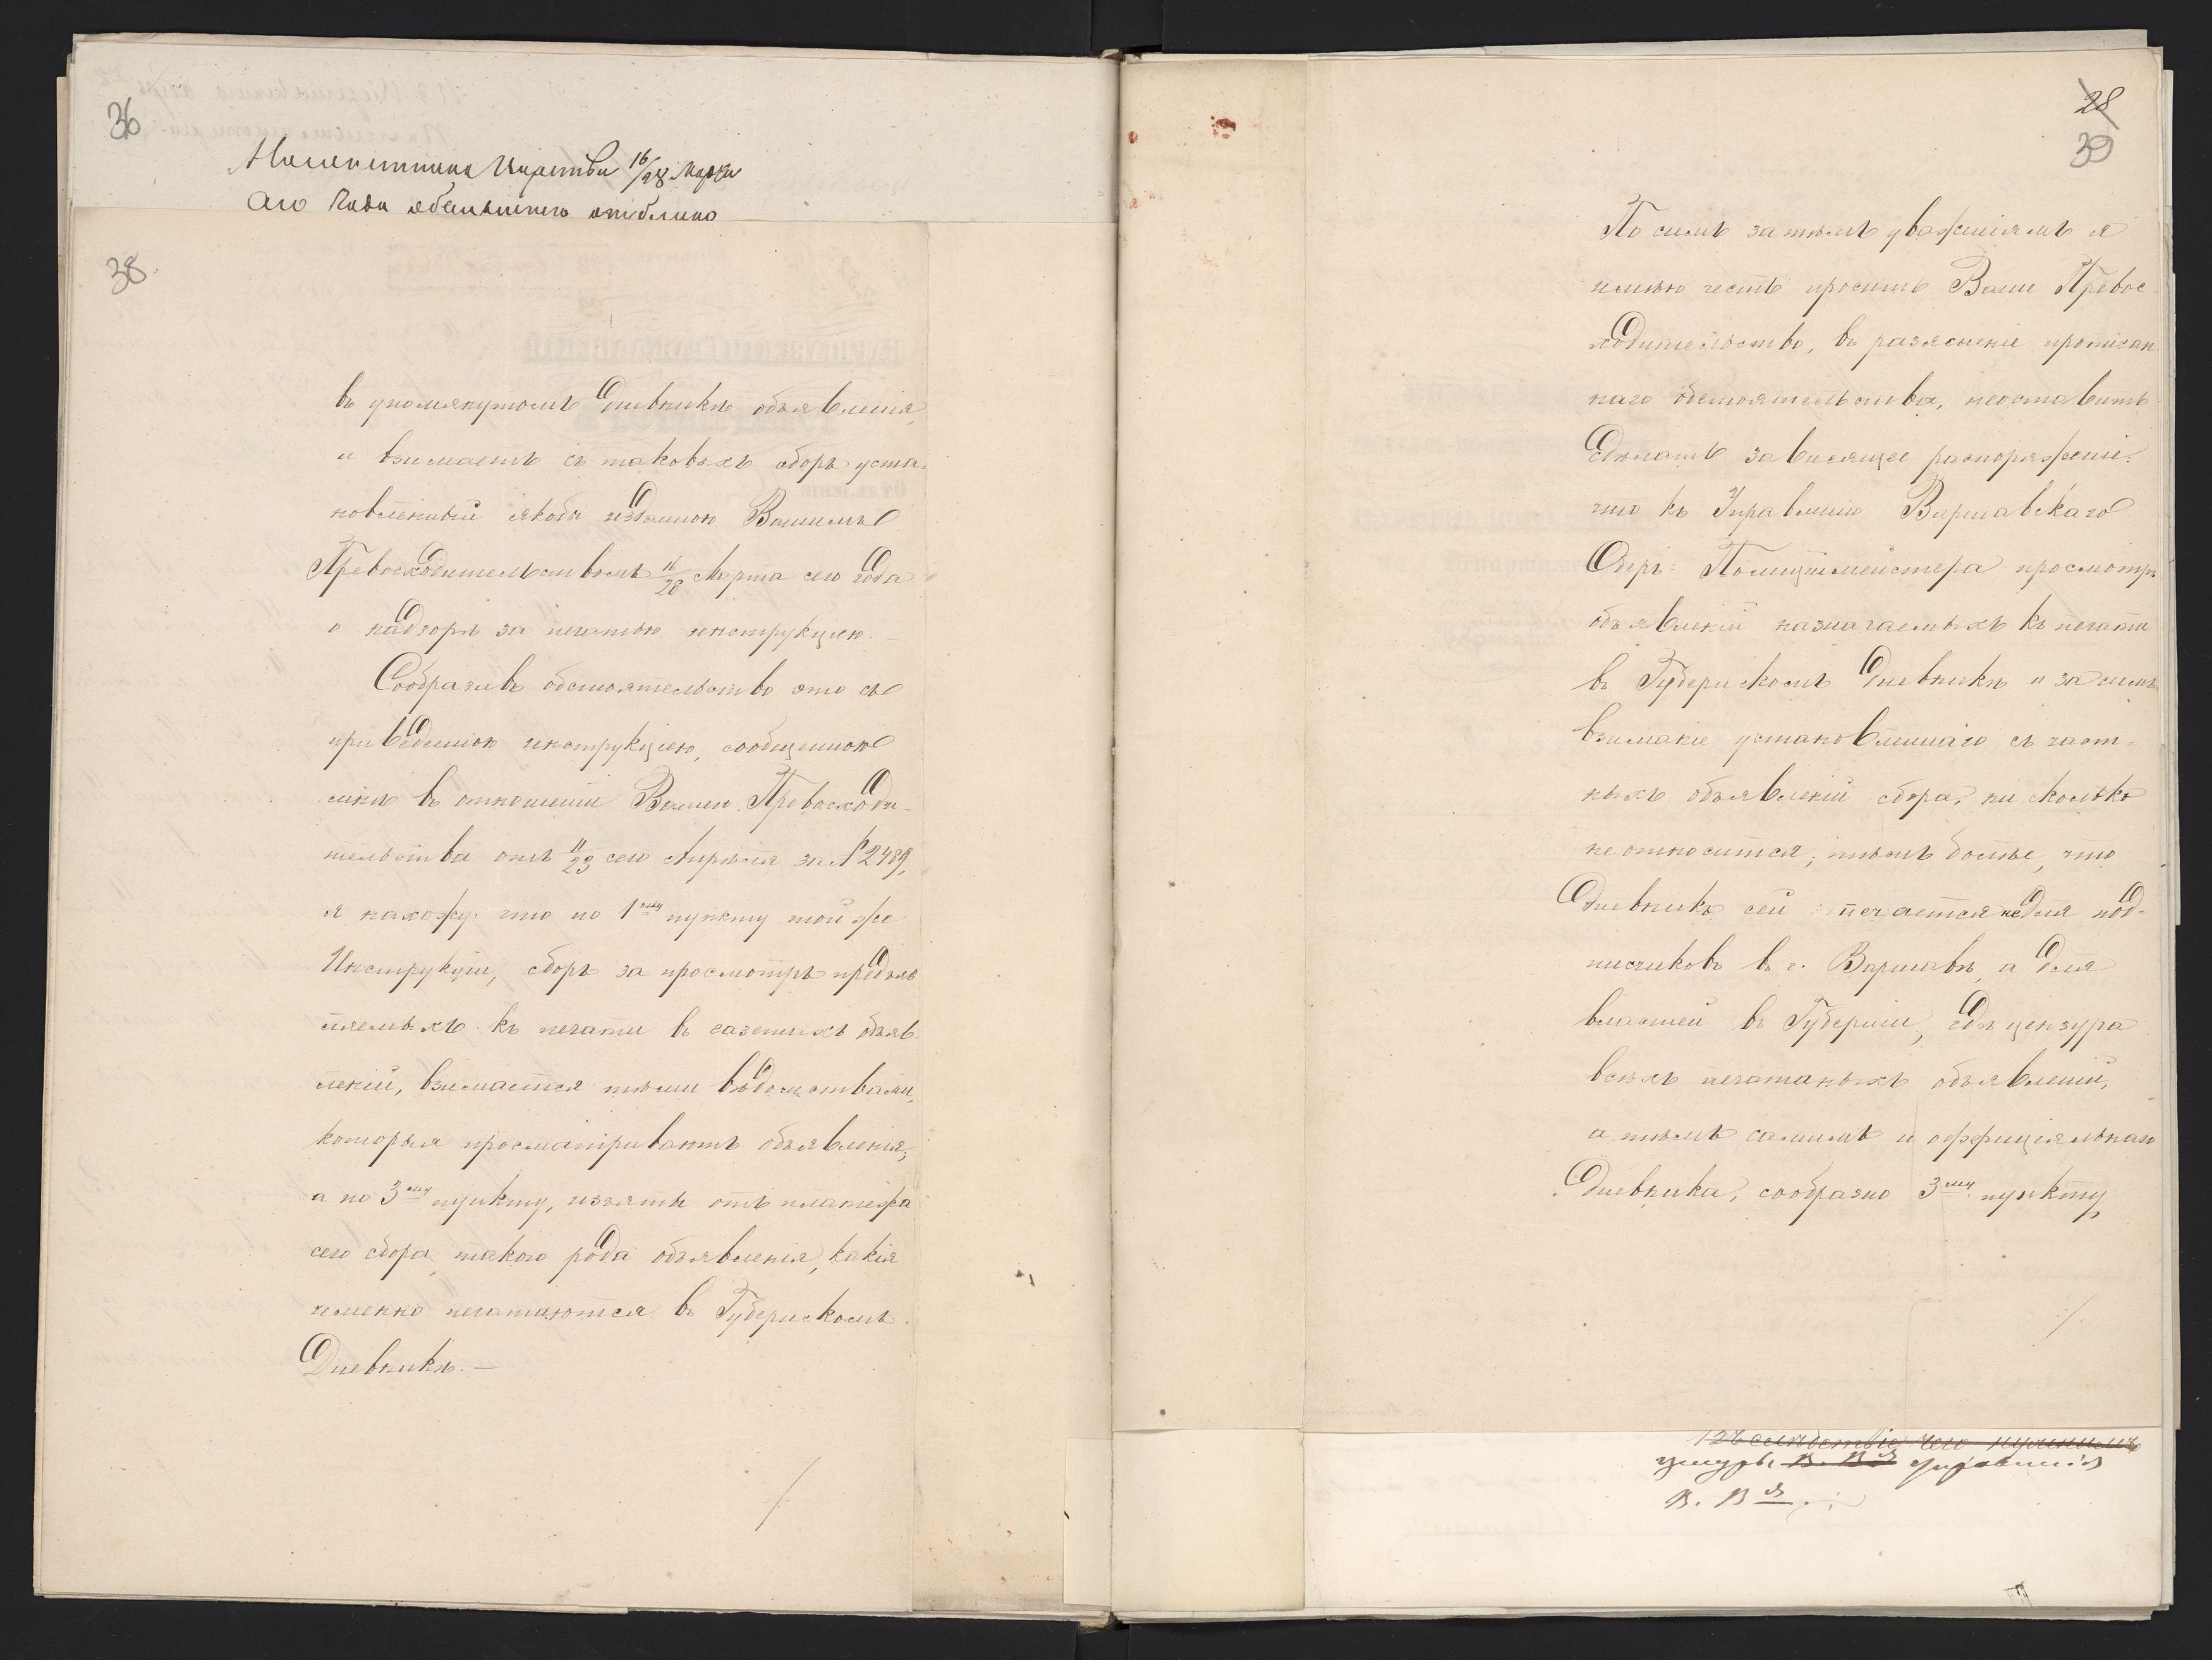 36
Намѣстника Царства 16/28 Марта
сего года
38.
въ упомянутомъ Дневникѣ объявленія,
и взимаетъ съ таковыхъ сборъ уста-
новленный якобы изданною Вашимъ
Превосходительствомъ 16/28 Марта сего года
о надзорѣ за печатью инструкціею. —
Сообразивъ обстоятельство это съ
приведенною инструкціею, сообщенною
мнѣ въ отношеніи Вашего Превосходи-
тельства отъ 11/23 сего Апрѣля за № 2489,
я нахожу: что по 1му пункту той же
Инструкціи, сборъ за просмотръ предъяв
ляемыхъ къ печати въ газетахъ объяв-
леній, взимается тѣми вѣдомствами,
которыя просматриваютъ объявленія;
а по 3му пункту, изъяты отъ платежа
сего сбора такого рода объявленія, какія
именно печатаются въ Губернскомъ
Дневникѣ. —
28
39
По симъ затѣмъ уваженіямъ я
имѣю честь просить Ваше Превос-
ходительство, въ разясненіе прописан
наго обстоятельства, неоставить
сдѣлать зависящее распоряженіе:
что къ Управленію Варшавскаго
Оберъ-Полиціймейстера просмотръ
объявленій назначаемыхъ къ печати
въ Губернскомъ Дневникѣ и за симъ
взиманіе установленнаго съ част-
ныхъ объявленій сбора, ни сколько
не относится; тѣмъ болѣе, что
Дневникъ сей печатается не для под-
писчиковъ въ г. Варшавѣ, а для
властей въ Губерніи, гдѣ цензура
всѣхъ печатаныхъ объявленій,
а тѣмъ самымъ и оффиціяльнаго
Дневника, сообразно 3му пункту
управленія